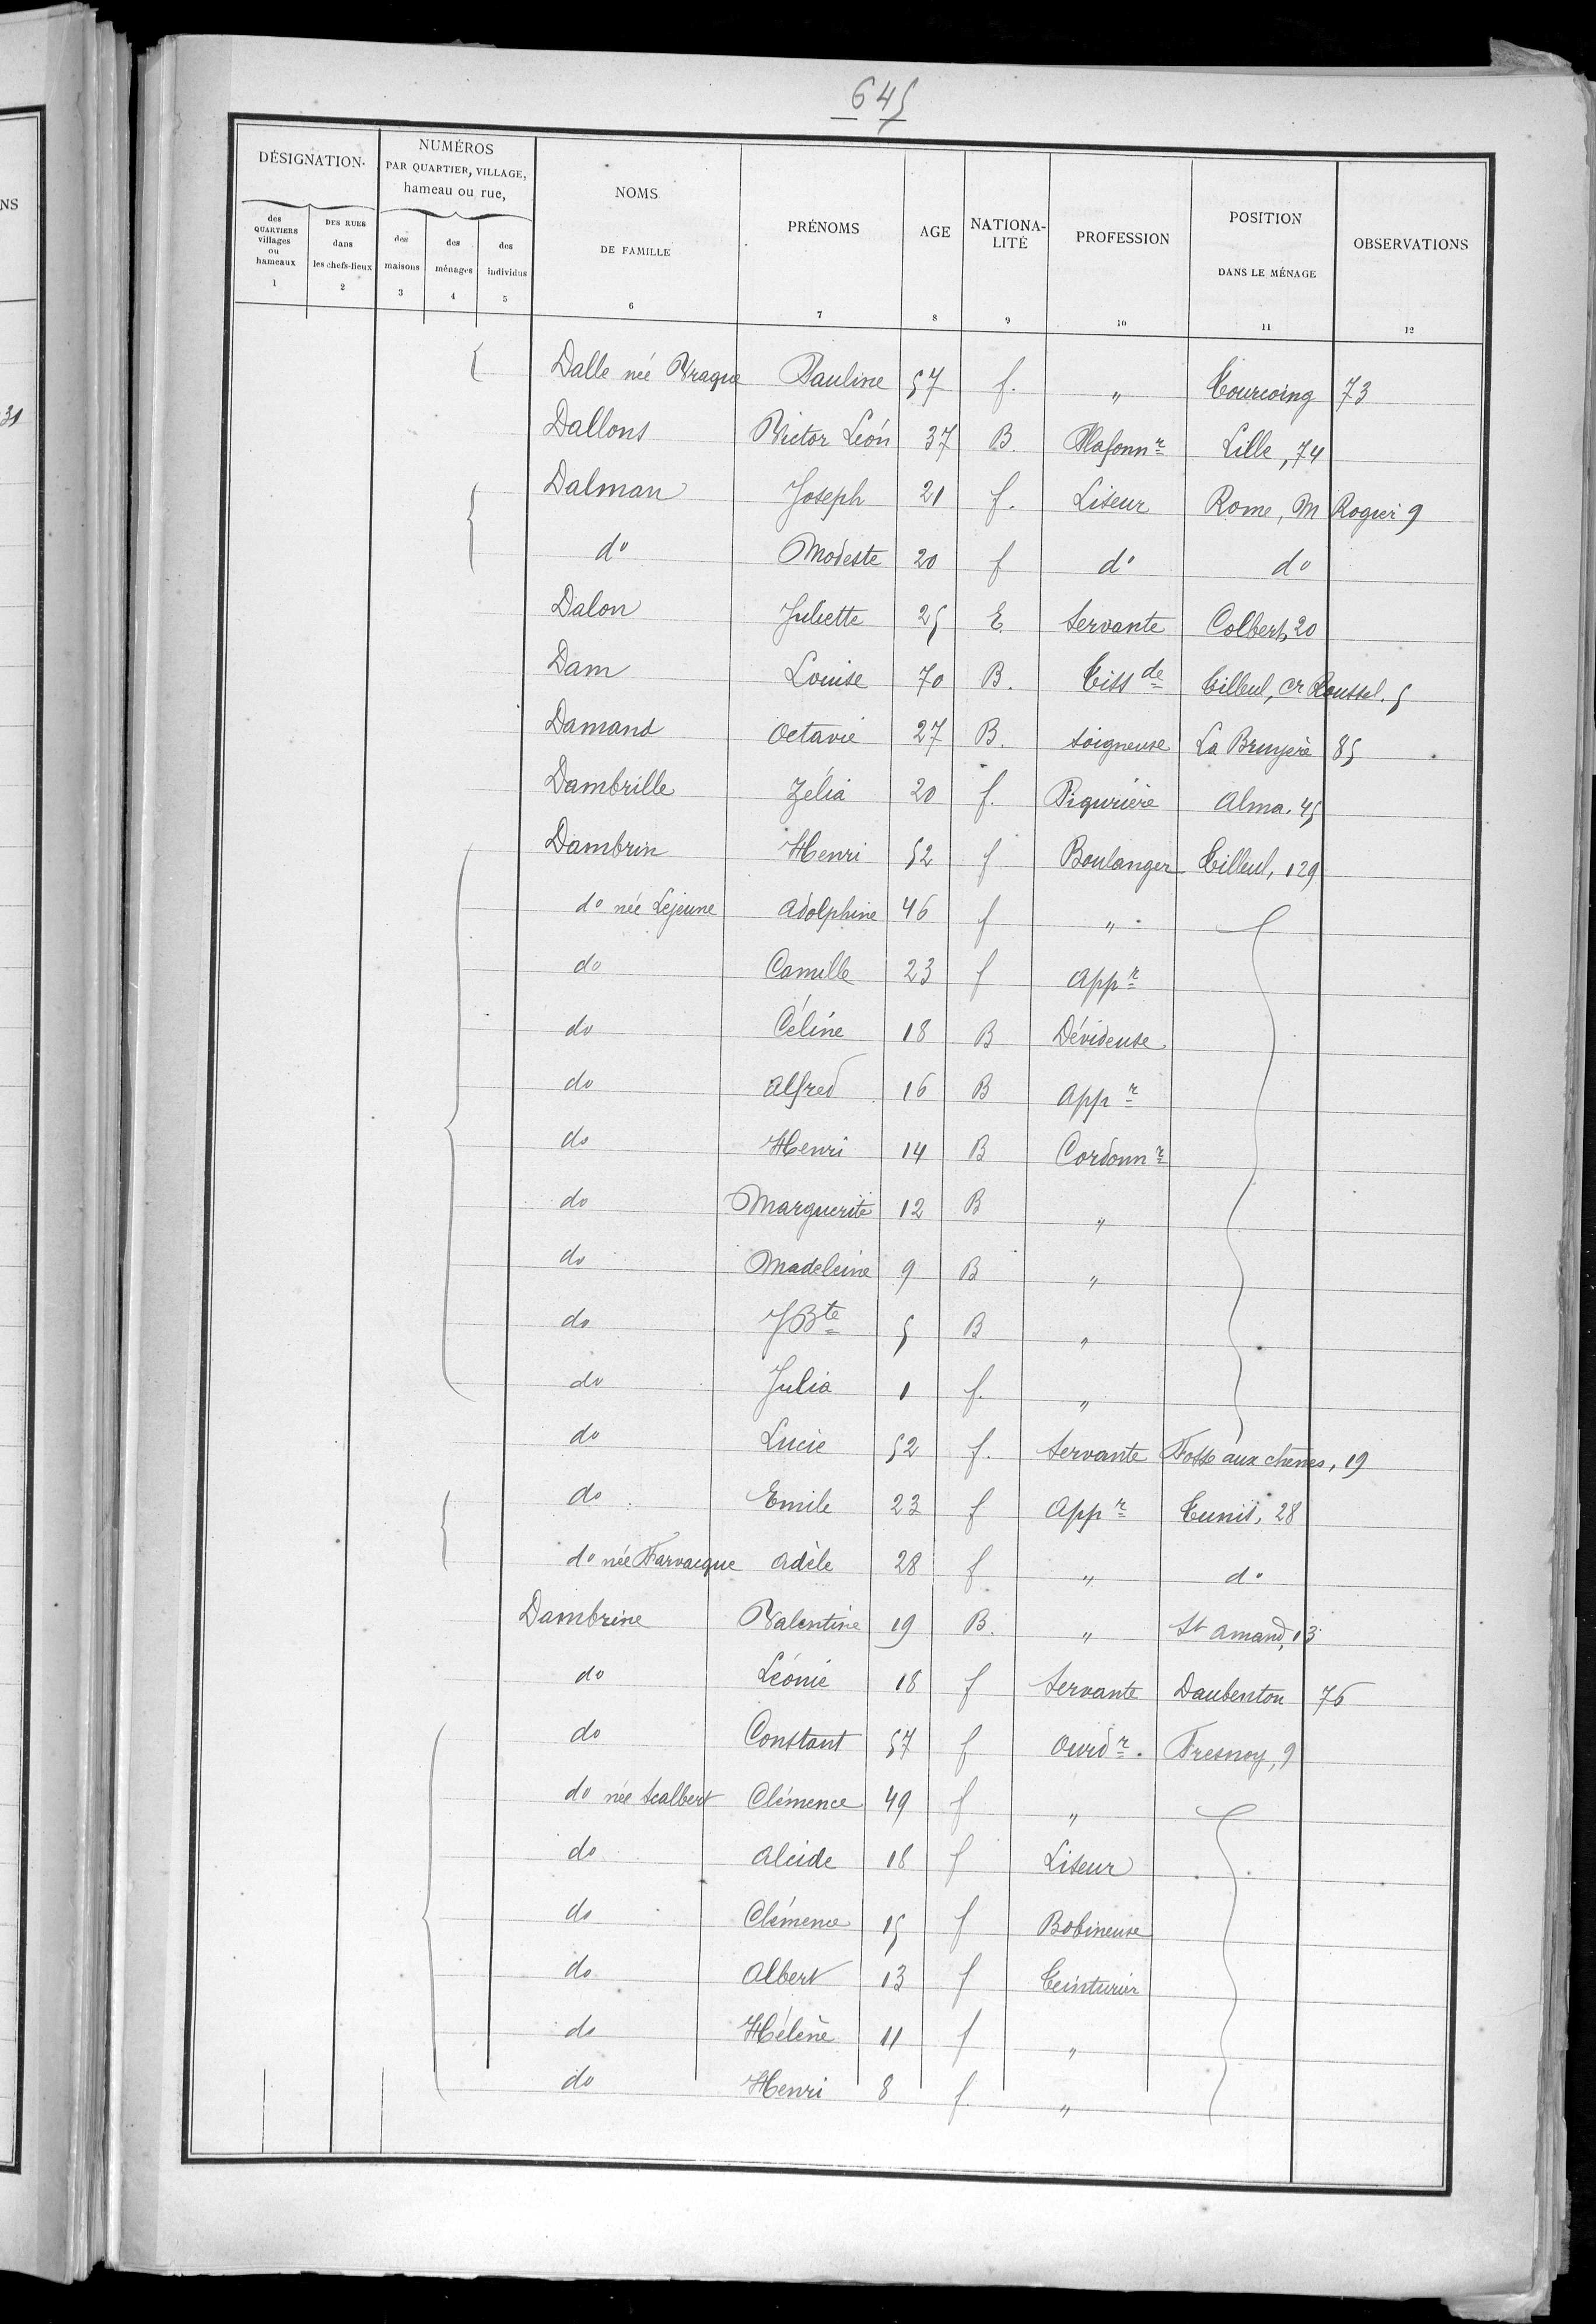 645
DÉSIGNATION
NUMÉROS PAR QUARTIER, VILLAGE, hameau ou rue,
NOMS DE FAMILLE
PRÉNOMS
AGE
NATIONALITÉ
PROFESSION
POSITION DANS LE MÉNAGE
OBSERVATIONS
des QUARTIERS villages ou hameaux
DES RUES dans les chefs-lieux
des maisons
des ménages
des individus
1 2 3 4 5 6 7 8 9 10 11 12
NS
31
Dalle née Vraque Pauline 57 f. " Tourcoing 73
Dallons Victor Léon 37 B. Plafonnr Lille, 74
Dalman Joseph 21 f. Liseur Rome, M Rogier 9
do Modeste 20 f do do
Dalon Juliette 25 E. Servante Colbert, 20
Dam Louise 70 B. Tissde Tilleul, cr Roussel. 5
Damand Octavie 27 B. Soigneuse La Bruyère 85
Dambrille Zélia 20 f. Piqurière Alma. 45
Dambrin Henri 52 f Boulanger Tilleul, 129
do née Lejeune Adolphine 46 f "
do Camille 23 f Appr
do Céline 18 B Dévideuse
do Alfred 16 B Appr
do Henri 14 B Cordonnr
do Marguerite 12 B "
do Madeleine 9 B "
do JBte 5 B "
do Julia 1 f. "
do Lucie 52 f. Servante Fosse aux chênes, 19
do Emile 23 f Appr Tunis, 28
do née Farvacque Adèle 28 f " do
Dambrine Valentine 19 B. " St Amand, 13
do Léonie 18 f Servante Daubenton 76
do Constant 57 f Ourdr. Fresnoy, 9
do née Scalbert Clémence 49 f "
do Alcide 18 f Liseur
do Clémence 15 f Bobineuse
do Albert 13 f Teinturier
do Hélène 11 f "
do Henri 8 f. "